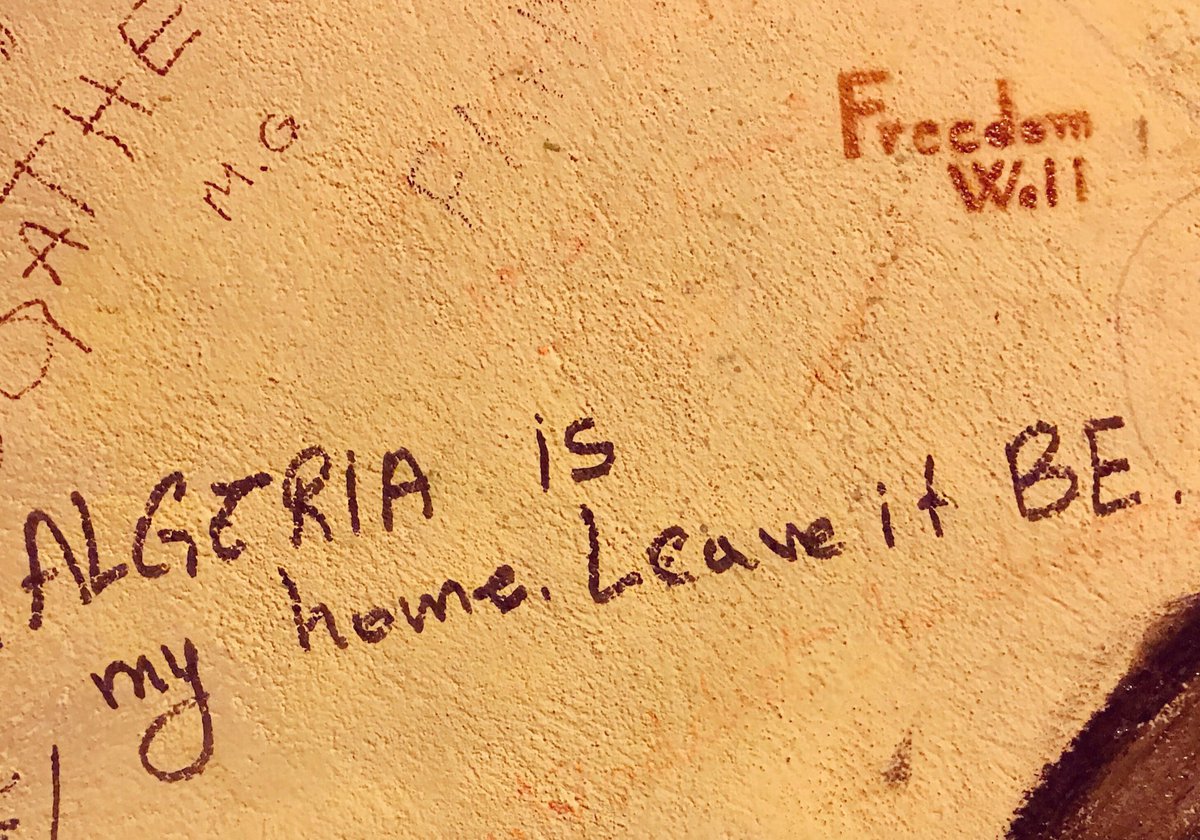 M.G
Freedom
Wall
ALGERIA is
my home. Leave it BE.